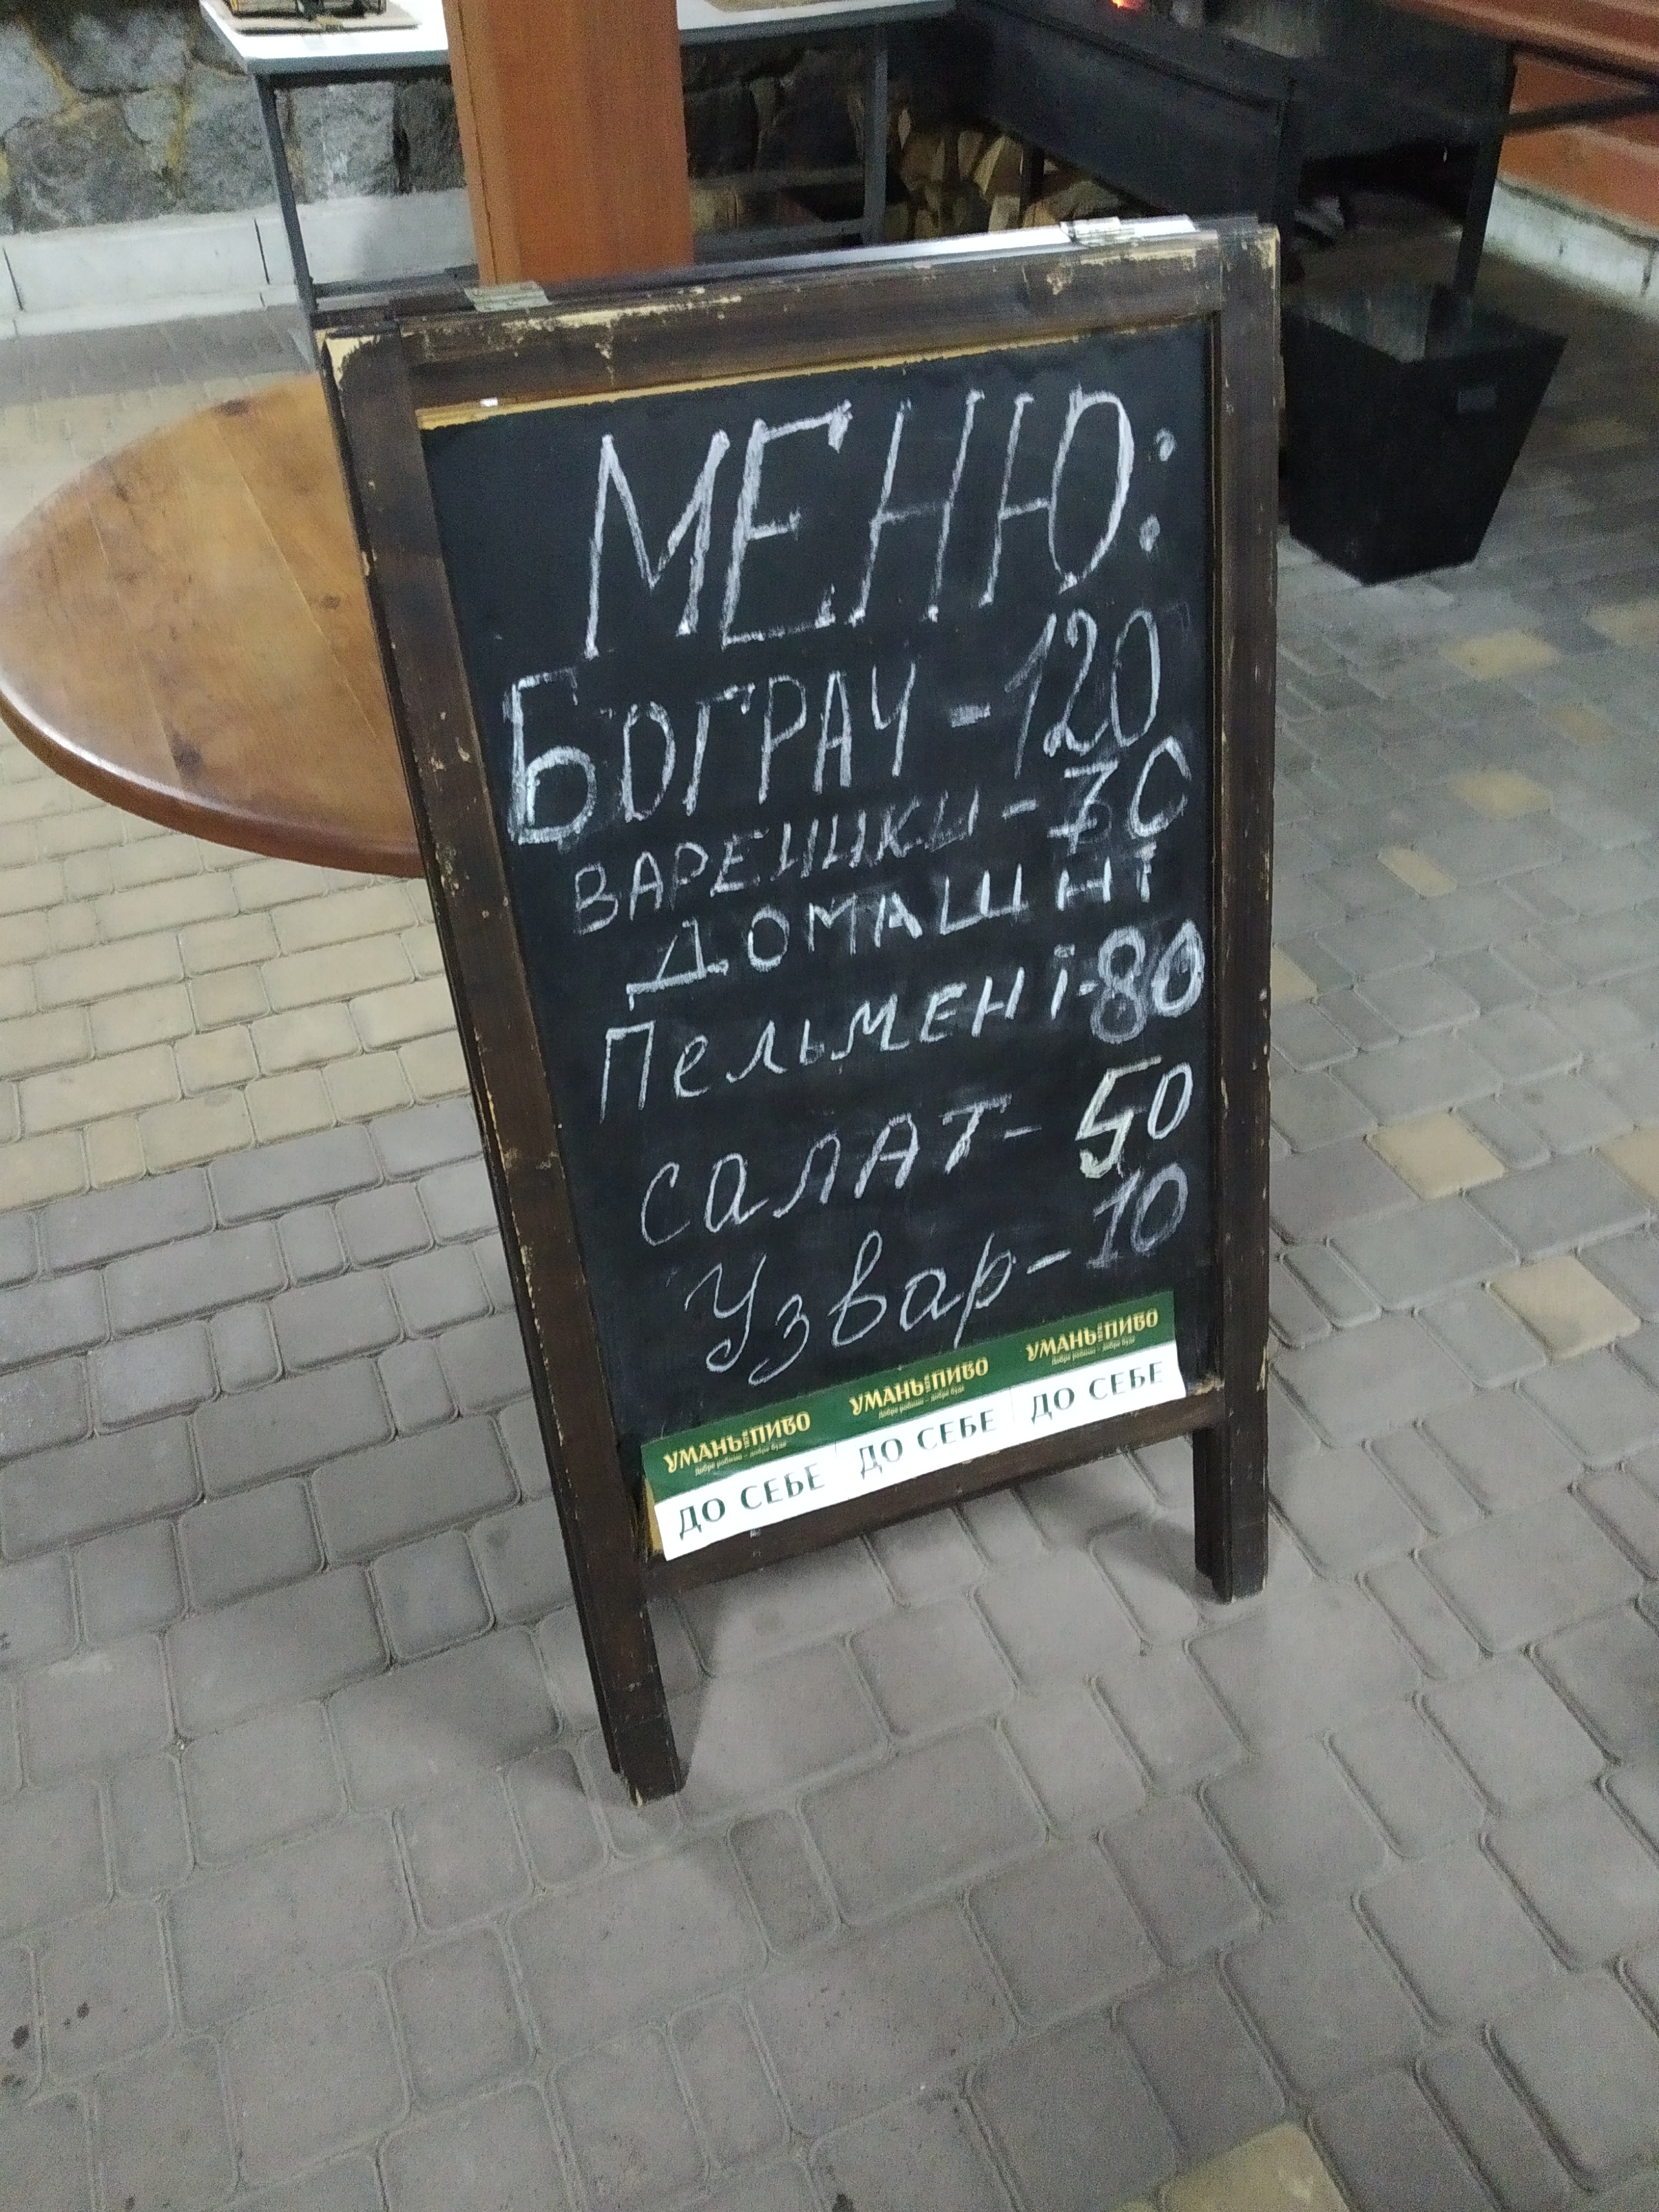 МЕНЮ:
БОГРАЧ - 120
ВАРЕНИКИ - 70
ДОМАШНІ
Пельмені - 80
САЛАТ - 50
Узвар - 10
УМАНЬ ПИВО УМАНЬ ПИВО УМАНЬ ПИВО
ДО СЕБЕ ДО СЕБЕ ДО СЕБЕ